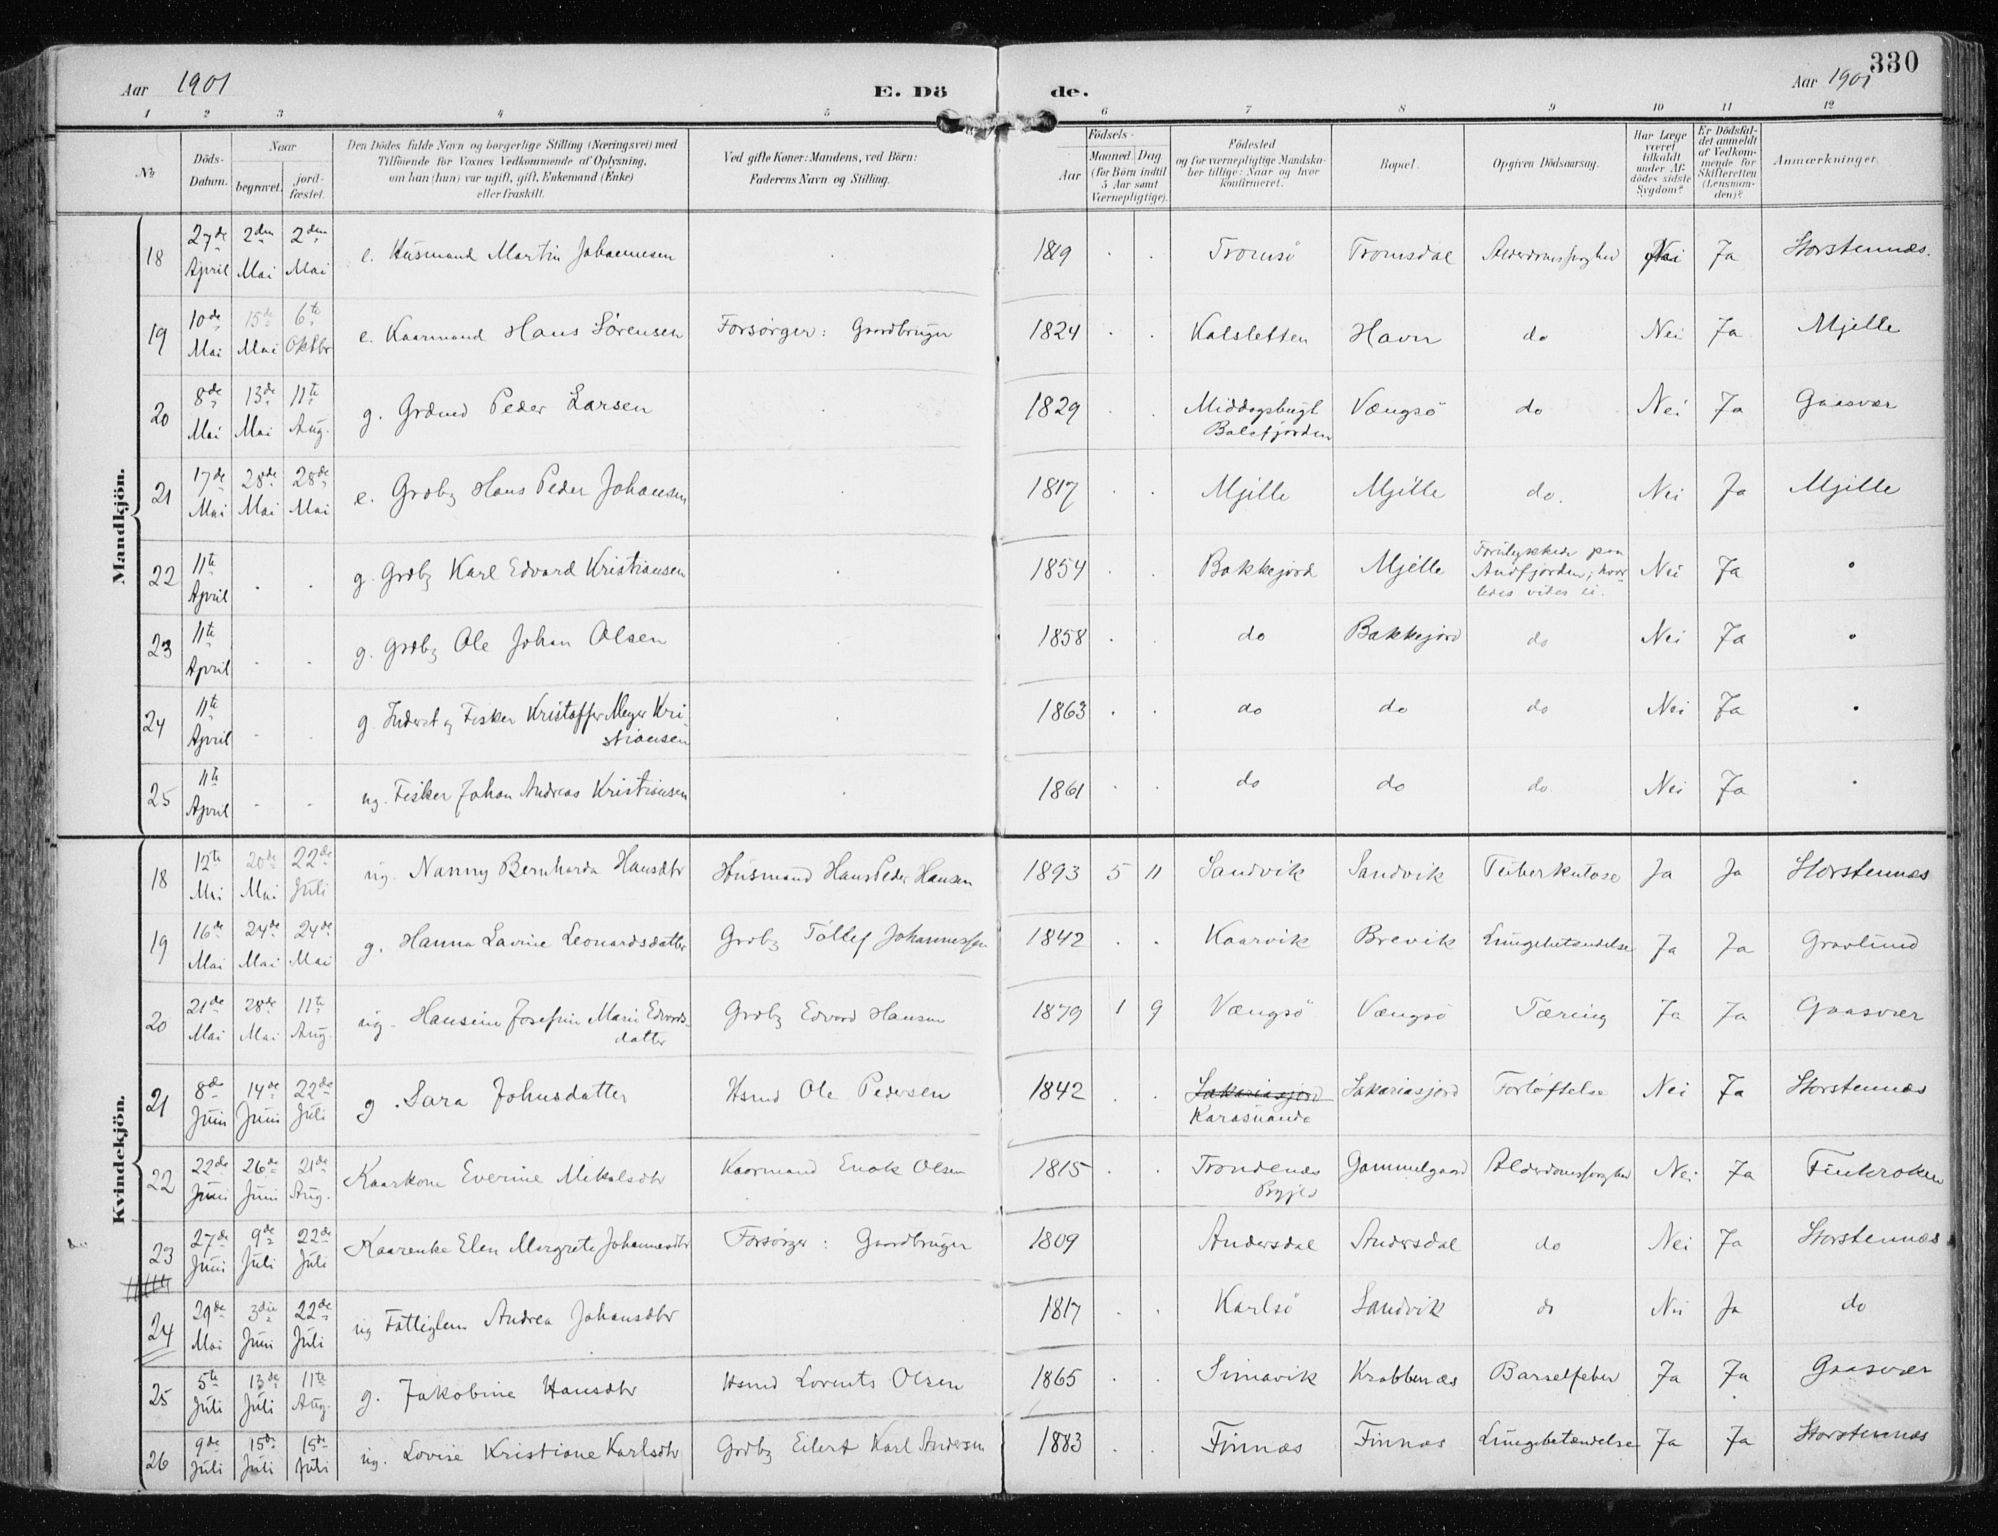 330
Aar 1901 E. Dö de. Aar 1901
1 2 3 4 5 6 7 8 9 10 11 12
No Döds-Datum. Naar begravet. jord-fæstet. Den Dödes fulde Navn og borgerlige Stilling (Næringsvei) med Tilföiende for Voxnes Vedkommende af Oplysning, om han (hun) var ugift, gift, Enkemand (Enke) eller fraskilt. Ved gifte Koner: Mandens, ved Börn: Faderens Navn og Stilling. Födsels- Aar Maaned. Dag (for Börn indtil 5 Aar samt Værnepligtige). Födested og for værnepligtige Mandskaber tillige: Naar og hvor konfirmeret. Bopæl. Opgiven Dödsaarsag. Har Læge været tilkaldt under Afdödes sidste Sygdom? Er Dödsfaldet anmeldt af Vedkommende for Skifteretten (Lensmanden)? Anmærkninger.
Mandkjön.
18 27de April 2den Mai 2den Mai e. Husmand Martin Johannesen 1819 Tromsö Tromsdal Alderdomssvaghed Nei Ja Storstennæs.
19 10de Mai 15de Mai 6te Oktbr e. Kaarmand Hans Sørensen Forsörger: Gaardbruger 1824 Kalsletten Havn do Nei Ja Mjelle
20 8de Mai 13de Mai 11te Aug. g. Grdmd Peder Larsen 1829 Middagsbugt Balsfjorden Vængsö do Nei Ja Gaasvær
21 17de Mai 28de Mai 28de Mai e. Grdbg Hans Peder Johansen 1817 Mjelle Mjelle do. Nei Ja Mjelle
22 11te April g. Grdbg Karl Edvard Kristiansen 1854 Bakkejord Mjelle Forulykkede paa Andfjorden; hvorledes vides ei. Nei Ja
23 11te April g. Grdbg Ole Johan Olsen 1858 do Bakkejord do Nei Ja
24 11te April g. Inderst og Fisker Kristoffer Meyer Kristiansen 1863 do do do Nei Ja
25 11te April ug. Fisker Johan Andreas Kristiansen 1861 do do do Nei Ja
Kvindekjön.
18 12te Mai 20de Mai 22de Juli ug. Nanny Bernharda Hansdtr Husmand Hans Peder Hansen 1893 5 11 Sandvik Sandvik Tuberkulose Ja Ja Storstennæs
19 16de Mai 24de Mai 24de Mai g. Hanna Lavine Leonardsdatter Grdbg Tollef Johannessen 1842 Kaarvik Brevik Lungebetændelse Ja Ja Gravlund
20 21de Mai 28de Mai 11te Aug. ug. Hansine Josefine Marie Edvardsdatter Grdbg Edvard Hansen 1879 1 9 Vængsö Vængsö Tæring Ja Ja Gaasvær
21 8de Juni 14de Juni 22de Juli g. Sara Johnsdatter Hsmd Ole Pedersen 1842 Sakariasjord Karasuando Sakariasjord Forløftelse Nei Ja Storstennæs
22 22de Juni 26de Juni 21de Aug. Kaarkone Everine Mikalsdtr Kaarmand Enok Olsen 1815 Trondenæs Prgjld Gammelgaard Alderdomssvaghed Nei Ja Finkroken
23 27de Juni 9de Juli 22de Juli Kaarenke Elen Margrete Johannesdtr Forsörger: Gaardbruger 1809 Andersdal Andersdal do Nei Ja Storstennæs
24 29de Mai 3die Juni 22de Juli ug Fattiglem Andrea Johansdtr 1817 Karlsö Sandvik do Nei Ja do
25 5te Juli 13de Juli 11te Aug. g. Jakobine Hansdtr Hsmd Lorents Olsen 1865 Simavik Krabbenæs Barselfeber Ja Ja Gaasvær
26 9de Juli 15de Juli 15de Juli ug. Lovise Kristiane Karlsdtr Grdbg Eilert Karl Andersen 1883 Finnæs Finnæs Lungebetændelse Ja Ja Storstennæs